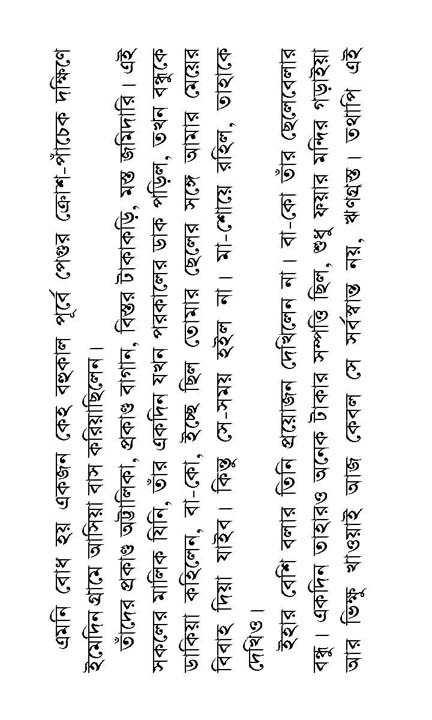 এমনি বোধ হয় একজন কেহ বহুকাল পূর্বে পেগুর ক্রোশ-পাঁচেক দক্ষিণে
ইমেদিন গ্রামে আসিয়া বাস করিয়াছিলেন।
তাঁদের প্রকাণ্ড অট্টালিকা, প্রকাণ্ড বাগান, বিস্তর টাকাকড়ি, মস্ত জমিদারি। এই
সকলের মালিক যিনি, তাঁর একদিন যখন পরকালের ডাক পড়িল, তখন বন্ধুকে
ডাকিয়া কহিলেন, বা-কো, ইচ্ছে ছিল তোমার ছেলের সঙ্গে আমার মেয়ের
বিবাহ দিয়া যাইব। কিন্তু সে-সময় হইল না। মা-শোয়ে রহিল, তাহাকে
দেখিও।
ইহার বেশি বলার তিনি প্রয়োজন দেখিলেন না। বা-কো তাঁর ছেলেবেলার
বন্ধু। একদিন তাহারও অনেক টাকার সম্পত্তি ছিল, শুধু ফয়ার মন্দির গড়াইয়া
আর ভিক্ষু খাওয়াই আজ কেবল সে সর্বস্বান্ত নয়, ঋণগ্রস্ত। তথাপি এই